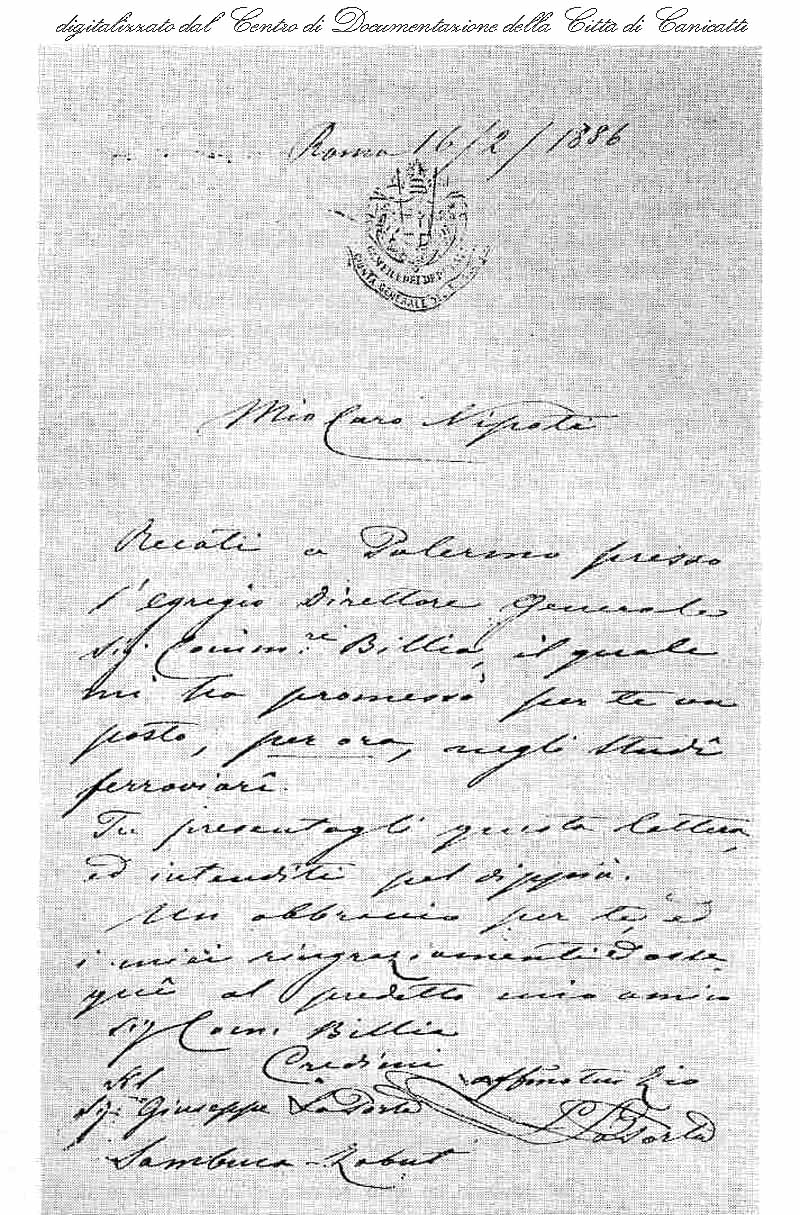 digitalizzato dal Centro di Documentazione della Città di Canicattì
Roma 16/2/1886
CAMERA DEI DEPUTATI
GIUNTA GENERALE DEL
Mio Caro Nipote
Recati a Palermo presso
l'egregio Direttore Generale
Sig. Comm.re Billia, il quale
mi ha promesso per te un
posto, per ora, negli studî
ferroviarî.
Tu presentagli questa lettera,
ed intenditi pel dippiù.
Un abbraccio per te, ed
i miei ringraziamenti ed osse
quî al predetto mio amico
Sig. Com. Billia
Credimi
affmo tuo Zio
Al
Sigr. Giuseppe La Porta
La Porta
Sambuca-Zabut